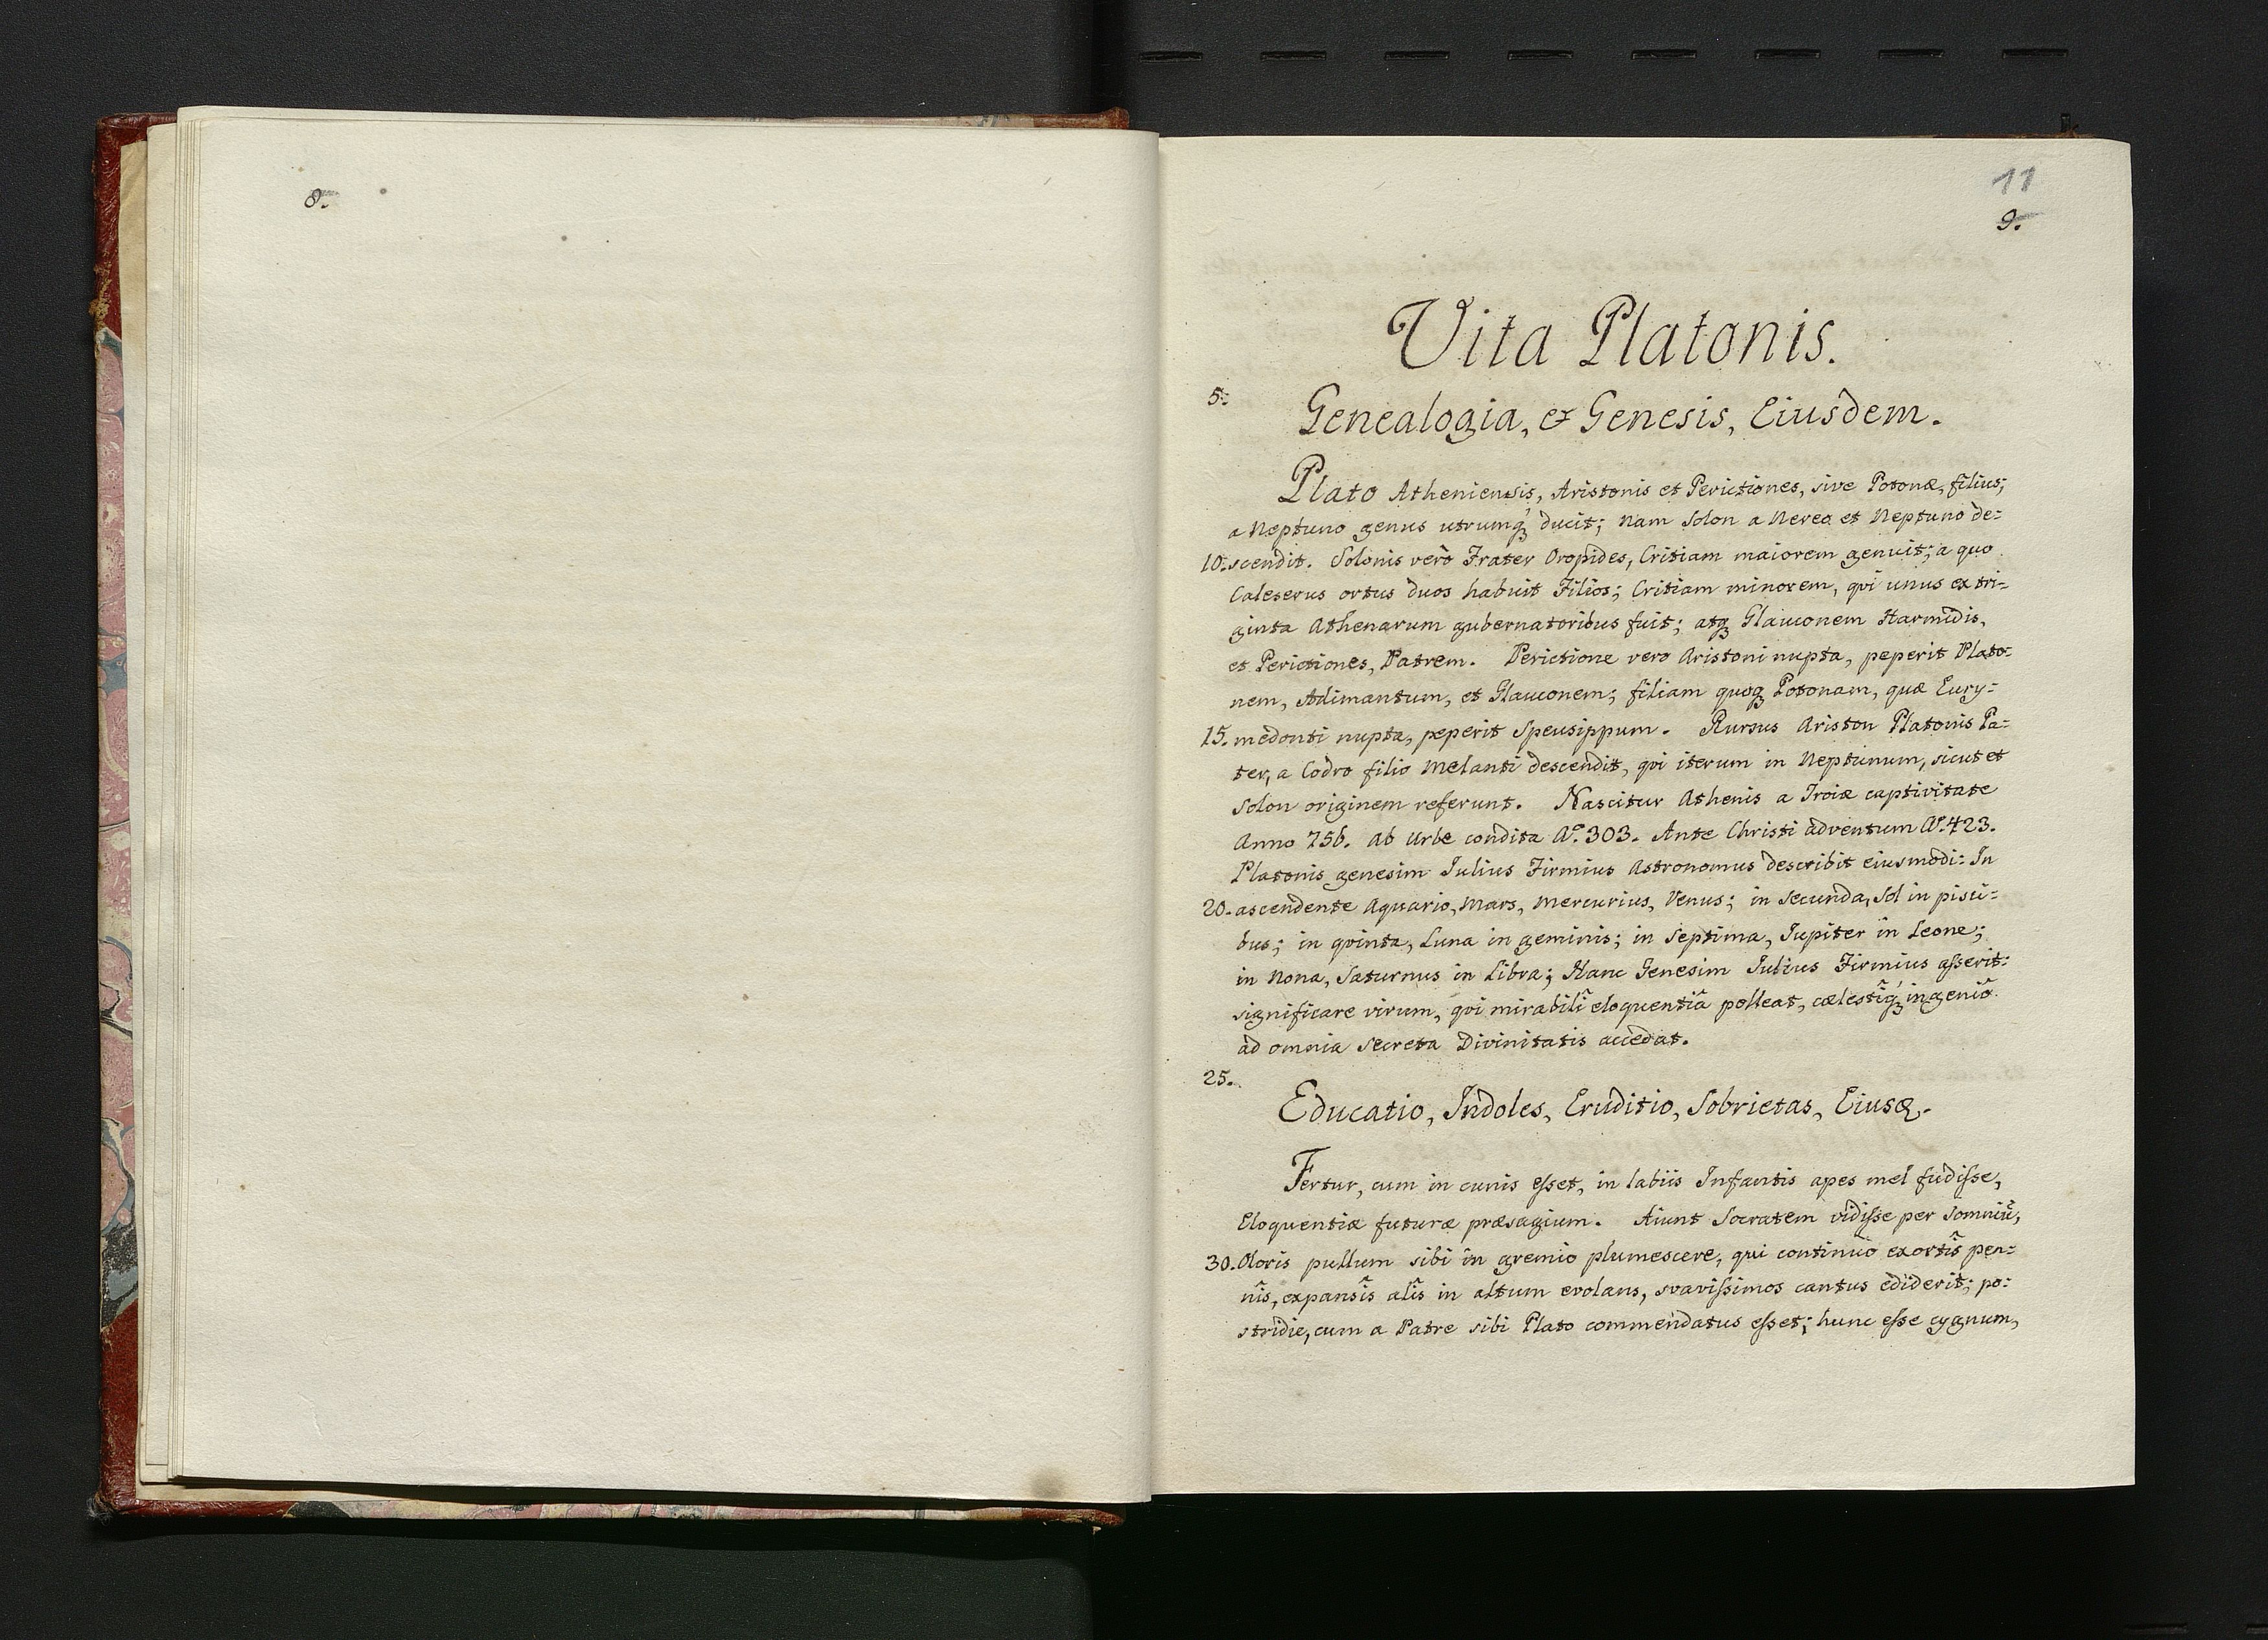 8.
11
9.
Vita Platonis.
5. Genealogia, & Genesis, Eiusdem.
Plato Atheniensis, Aristonis et Perictiones, sive Potonæ, filius;
a Neptuno genus utrumqꝫ ducit; nam Solon a Nereo et Neptuno de:
10. scendit. Solonis verò Frater Oropides, Critiam maiorem genuit; a quo
Caleserus ortus duos habuit Filios; Critiam minorem, qvi unus ex tri:
ginta Athenarum gubernatoribus fuit; atqꝫ Glauconem Harmidis,
et Perictiones, Patrem. Perictione vero Aristoni nupta, peperit Plato:
nem, Adimantum, et Glauconem; filiam quoqꝫ Potonam, quæ Eury:
15. medonti nupta, peperit Speusippum. Rursus Ariston Platonis Pa:
ter, a Codro filio Melanti descendit, qvi iterum in Neptunum, sicut et
Solon originem referunt. Nascitur Athenis a Troiæ captivitate
Anno 756. ab Urbe condita Aº. 303. Ante Christi adventum Aº. 423.
Platonis genesim Iulius Firmius Astronomus describit eiusmodi: In
20. ascendente Aquario, Mars, Mercurius, Venus; in secunda, Sol in pisci:
bus; in qvinta, Luna in geminis; in septima, Iupiter in Leone;
in Nona, Saturnus in Libra; Hanc Genesim Iulius Firmius asserit:
significare virum, qvi mirabili eloquentiâ polleat, cælestiqꝫ ingeniô
ad omnia secreta Divinitatis accedat.
25.
Educatio, Indoles, Eruditio, Sobrietas, Eiusꝗ.
Fertur, cum in cunis esset, in labiis Infantis apes mel fudisse,
Eloquentiæ futuræ præsagium. Aiunt Socratem vidisse per somniũ,
30. Oloris pullum sibi in gremio plumescere, qui continuò exortîs pen:
nîs, expansîs alîs in altum evolans, svavissimos cantus ediderit; po:
stridie, cum a Patre sibi Plato commendatus esset; hunc esse cygnum,